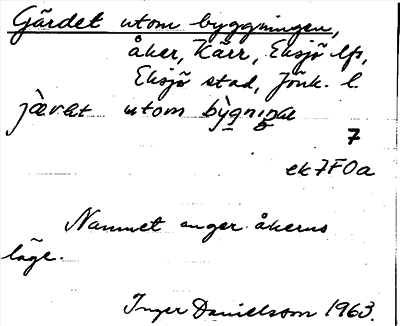 Gärdet utom byggningen,
åker, Kärr, Eksjö lfs,
Eksjö stad, Jönk. l.
utom
7
ek 7F0a
Namnet anger åkerns
läge.
Inger Danielsson 1963.